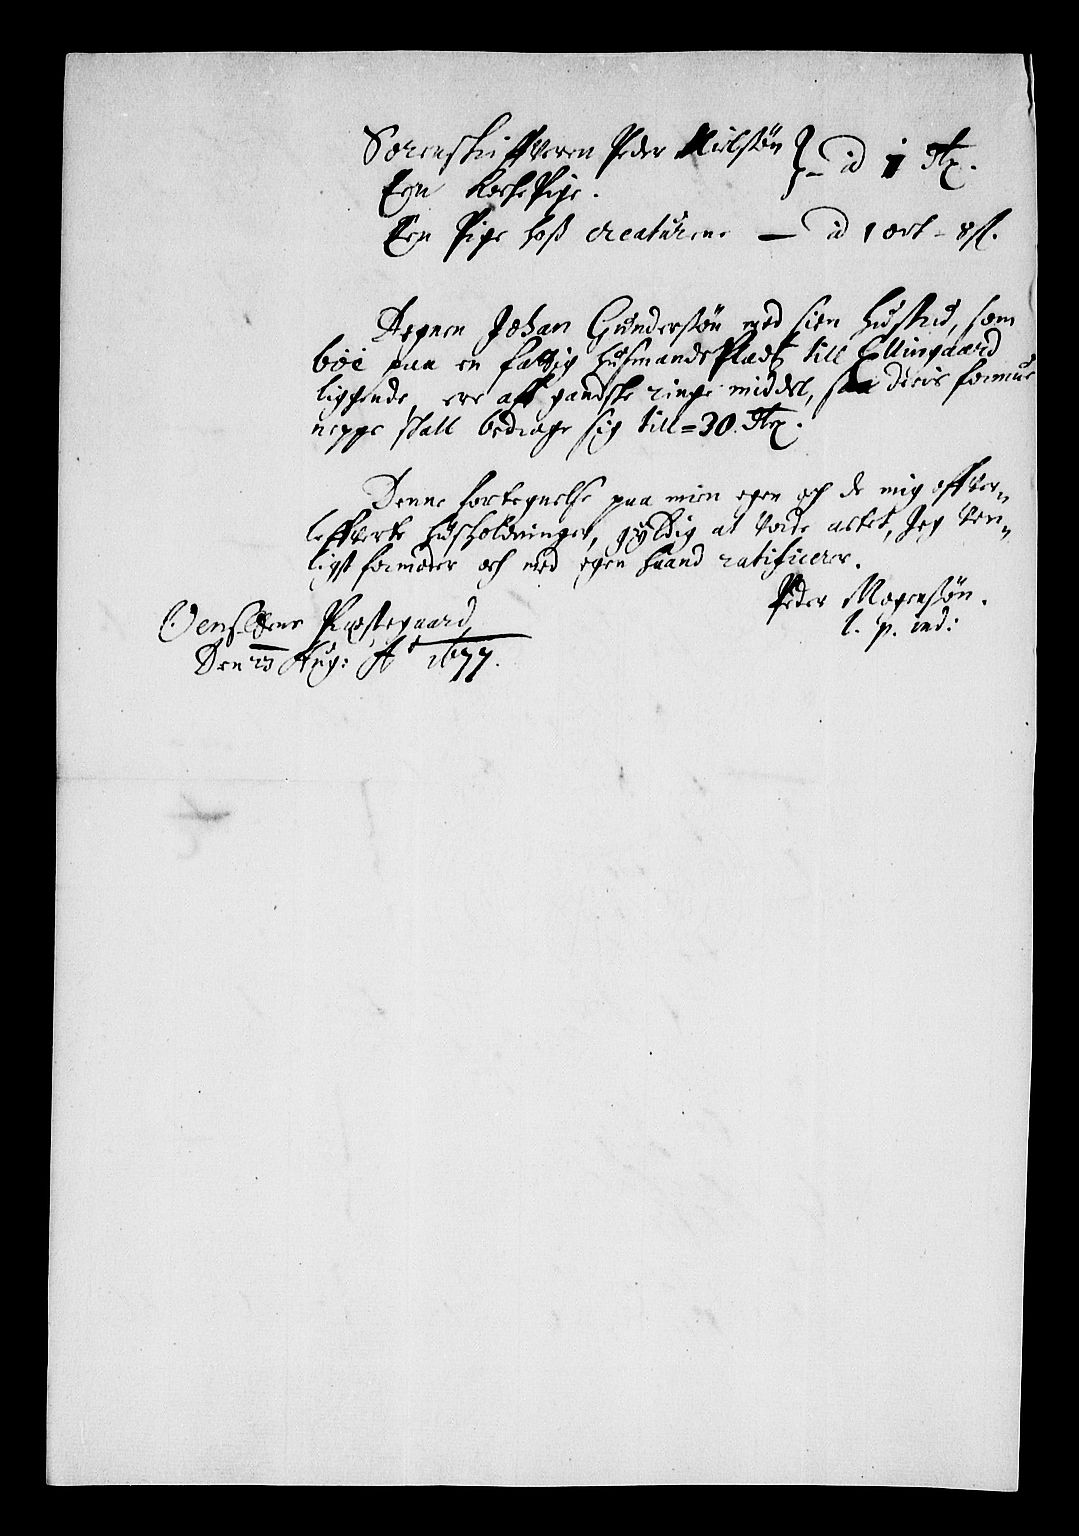 Sorenskriffveren Peder Nielsøn } – id 1 Rtx.
Een KockePige.
Een Pige hoß creaturene — id 1 ort - 8 ß.
Degnen Johan Gundersøn med sien Hustru, som
boe paa en fattig HusmandsPladtz till Ellingaard
liggende, ere aff gandske ringe middel, saa deris formue
neppe skall bedrage sig till = 30. Rtx.
Denne fortegnelse paa mien egen och de mig offver„
leffverte Husholdninger, gyldig at vorde actet, Jeg ven„
ligst formoder och med egen Haand ratificerer.
Peder Mogensøn.
l. p. ind:
Præstegaard
Den 23 Aug: Aº 1677.